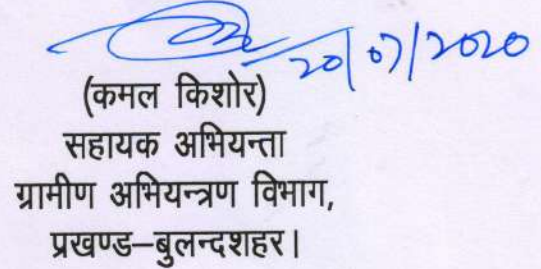 20/07/2020
(कमल किशोर)
सहायक अभियन्ता
ग्रामीण अभियन्त्रण विभाग,
प्रखण्ड–बुलन्दशहर।